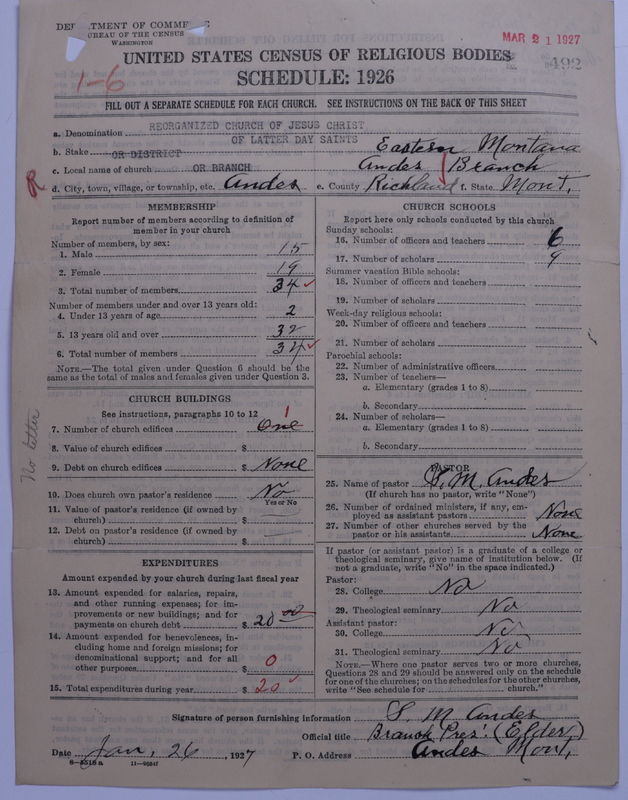 DEPARTMENT OF COMMERCE
BUREAU OF THE CENSUS
WASHINGTON
MAR 21 1927
UNITED STATES CENSUS OF RELIGIOUS BODIES
492
1-6
SCHEDULE: 1926
FILL OUT A SEPARATE SCHEDULE FOR EACH CHURCH. SEE INSTRUCTIONS ON THE BACK OF THIS SHEET
a. Denomination REORGANIZED CHURCH OF JESUS CHRIST
OF LATTER DAY SAINTS
b. Stake OR DISTRICT Eastern Montana
c. Local name of church OR BRANCH Andes Branch
R d. City, town, village, or township, etc. Andes e. County Richland f. State Mont.
MEMBERSHIP
Report number of members according to definition of
member in your church
Number of members, by sex:
1. Male 15
2. Female 19
3. Total number of members 34
Number of members under and over 13 years old:
4. Under 13 years of age 2
5. 13 years old and over 32
6. Total number of members 34
NOTE.—The total given under Question 6 should be the
same as the total of males and females given under Question 3.
CHURCH BUILDINGS
See instructions, paragraphs 10 to 12
7. Number of church edifices One 1
8. Value of church edifices $
9. Debt on church edifices $ None
No letter
10. Does church own pastor's residence No
Yes or No
11. Value of pastor's residence (if owned by
church) $
12. Debt on pastor's residence (if owned by
church) $
EXPENDITURES
Amount expended by your church during last fiscal year
13. Amount expended for salaries, repairs,
and other running expenses; for im-
provements or new buildings; and for
payments on church debt $ 20 00
14. Amount expended for benevolences, in-
cluding home and foreign missions; for
denominational support; and for all
other purposes $ 0
15. Total expenditures during year $ 20
CHURCH SCHOOLS
Report here only schools conducted by this church
Sunday schools:
16. Number of officers and teachers 6
17. Number of scholars 9
Summer vacation Bible schools:
18. Number of officers and teachers
19. Number of scholars
Week-day religious schools:
20. Number of officers and teachers
21. Number of scholars
Parochial schools:
22. Number of administrative officers
23. Number of teachers—
a. Elementary (grades 1 to 8)
b. Secondary
24. Number of scholars—
a. Elementary (grades 1 to 8)
b. Secondary
PASTOR
25. Name of pastor S. M. Andes
(If church has no pastor, write "None")
26. Number of ordained ministers, if any, em-
ployed as assistant pastors None
27. Number of other churches served by the
pastor or his assistants None
If pastor (or assistant pastor) is a graduate of a college or
theological seminary, give name of institution below. (If
not a graduate, write "No" in the space indicated.)
Pastor:
28. College No
29. Theological seminary No
Assistant pastor:
30. College No
31. Theological seminary No
NOTE.—Where one pastor serves two or more churches,
Questions 28 and 29 should be answered only on the schedule
for one of the churches; on the schedules for the other churches,
write "See schedule for church."
Signature of person furnishing information S. M. Andes
Official title Branch Pres. (Elder)
Date Jan. 26, 1927 P. O. Address Andes Mont.
8-5318a 11-90247